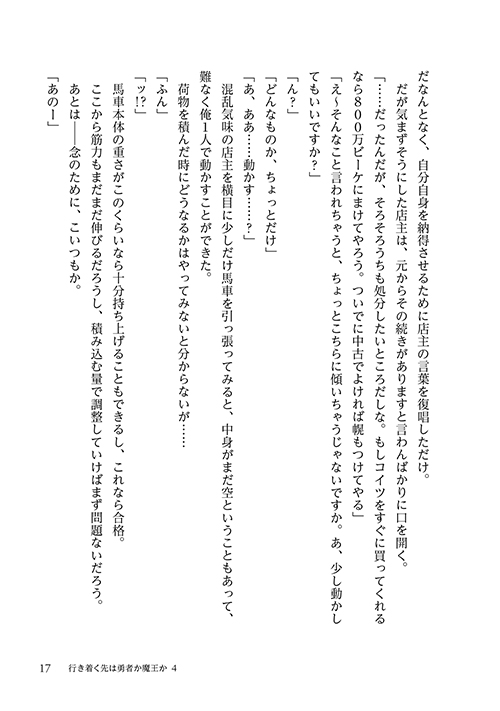 だなんとなく、自分自身を納得させるために店主の言葉を復唱しただけ。
だが気まずそうにした店主は、元からその続きがありますと言わんばかりに口を開く。
「……だったんだが、そろそろうちも処分したいところだしな。もしコイツをすぐに買ってくれる
なら８００万ビーケにまけてやろう。ついでに中古でよければ幌もつけてやる」
「え～そんなこと言われちゃうと、ちょっとこちらに傾いちゃうじゃないですか。あ、少し動かし
てもいいですか？」
「ん？」
「どんなものか、ちょっとだけ」
「あ、ああ……動かす……？」
混乱気味の店主を横目に少しだけ馬車を引っ張ってみると、中身がまだ空ということもあって、
難なく俺１人で動かすことができた。
荷物を積んだ時にどうなるかはやってみないと分からないが……
「ふん」
「ッ!?」
馬車本体の重さがこのくらいなら十分持ち上げることもできるし、これなら合格。
ここから筋力もまだまだ伸びるだろうし、積み込む量で調整していけばまず問題ないだろう。
あとは――念のために、こいつもか。
「あのー」
17 行き着く先は勇者か魔王か 4